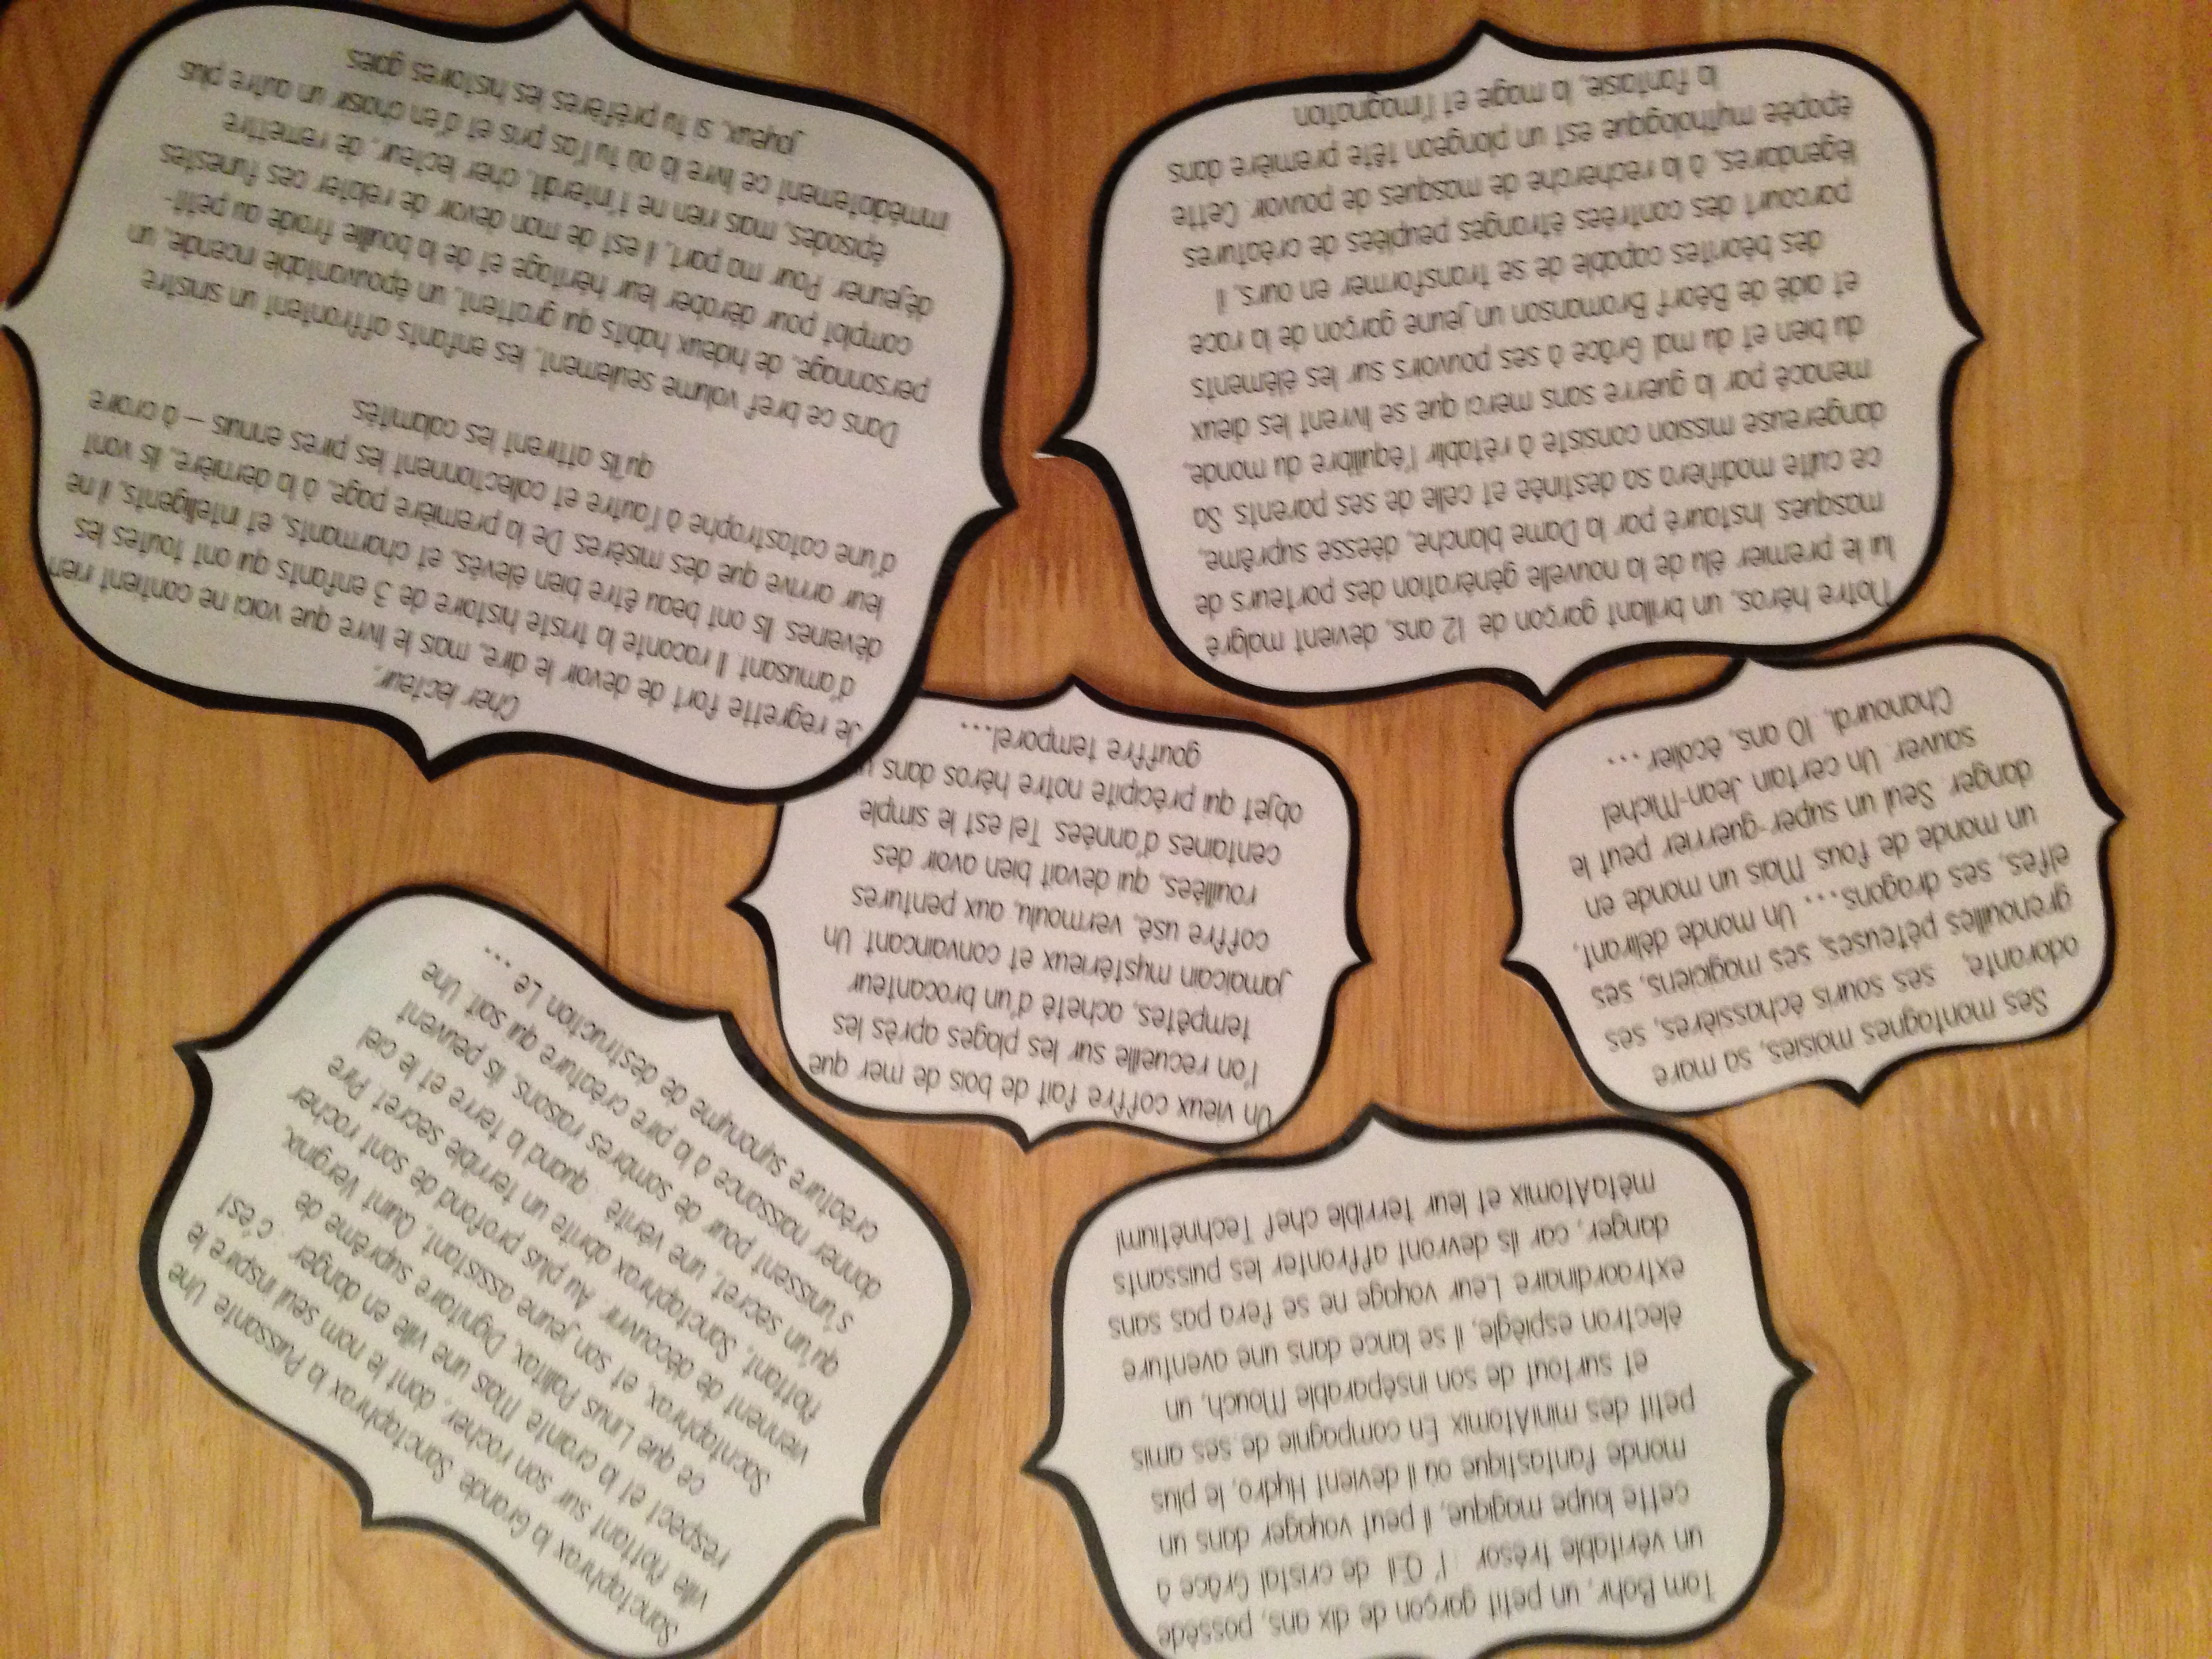 Tom Bohr, un petit garçon de dix ans, possède
un véritable trésor : l'Œil de cristal. Grâce à
cette loupe magique, il peut voyager dans un
monde fantastique où il devient Hydro, le plus
petit des miniAtomix. En compagnie de ses amis
et surtout de son inséparable Mouch, un
électron espiègle, il se lance dans une aventure
extraordinaire. Leur voyage ne se fera pas sans
danger, car ils devront affronter les puissants
métaAtomix et leur terrible chef Technétium!
Sanctaphrax la Grande. Sanctaphrax la Puissante. Une
ville flottant sur son rocher, dont le nom seul inspire le
respect et la crainte. Mais une ville en danger : c'est
ce que Linus Pallitax, Dignitaire suprême de
Sacntaphrax, et son jeune assistant, Quint Verginix,
viennent de découvrir. Au plus profond de sont rocher
flottant, Sanctaphrax abrite un terrible secret. Pire
qu'un secret, une vérité : quand la terre et le ciel
s'unissent pour de sombres raisons, ils peuvent
donner naissance à la pire créature qui soit. Une
créature synonyme de destruction. Le ...
Ses montagnes moisies, sa mare
odorante, ses souris échassières, ses
grenouilles péteuses, ses magiciens, ses
elfes, ses dragons... Un monde délirant,
un monde de fous. Mais un monde en
danger. Seul un super-guerrier peut le
sauver. Un certain Jean-Michel
Chanourdi, 10 ans, écolier ...
Un vieux coffre fait de bois de mer que
l'on recueille sur les plages après les
tempêtes, acheté d'un brocanteur
jamaïcain mystérieux et convaincant. Un
coffre usé, vermoulu, aux pentures
rouillées, qui devait bien avoir des
centaines d'années. Tel est le simple
objet qui précipite notre héros dans
gouffre temporel...
Notre héros, un brillant garçon de 12 ans, devient malgré
lui le premier élu de la nouvelle génération des porteurs de
masques. Instauré par la Dame blanche, déesse suprême,
ce culte modifiera sa destinée et celle de ses parents. Sa
dangereuse mission consiste à rétablir l'équilibre du monde,
menacé par la guerre sans merci que se livrent les deux
du bien et du mal. Grâce à ses pouvoirs sur les éléments
et aidé de Béorf Bromanson un jeune garçon de la race
des béorites capable de se transformer en ours, il
parcourt des contrées étranges peuplées de créatures
légendaires, à la recherche de masques de pouvoir. Cette
épopée mythologique est un plongeon tête première dans
la fantaisie, la mage et l'imagination
Cher lecteur,
Je regrette fort de devoir le dire, mais le livre que voici ne contient rien
d'amusant. Il raconte la triste histoire de 3 enfants qui ont toutes les
déveines. Ils ont beau être bien élevés, et charmants, et intelligents, il ne
leur arrive que des misères. De la première page, à la dernière, ils vont
d'une catastrophe à l'autre et collectionnent les pires ennuis – à croire
qu'ils attirent les calamités.
Dans ce bref volume seulement, les enfants affrontent un sinistre
personnage, de hideux habits qui grattent, un épouvantable incendie, un
complot pour dérober leur héritage et de la bouillie froide au petit-
déjeuner. Pour ma part, il est de mon devoir de relater ces funestes
épisodes, mais rien ne t'interdit, cher lecteur, de remettre
immédiatement ce livre là où tu l'as pris et d'en choisir un autre plus
joyeux, si tu préfères les histoires gaies